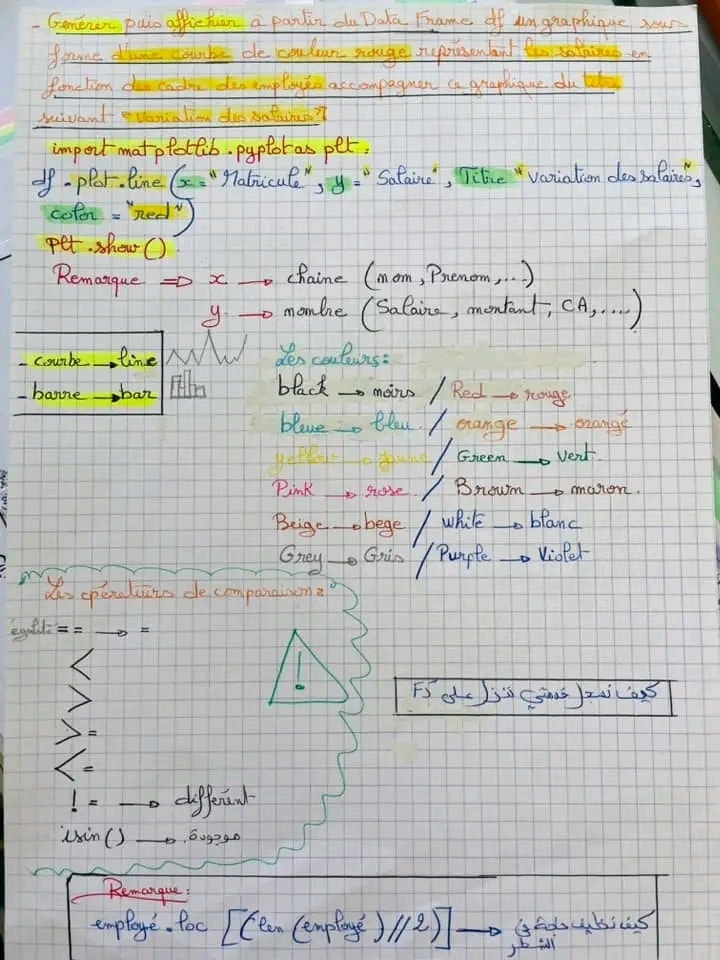 - Générer puis affichier à partir du Data Frame df un graphique sous
forme d'une courbe de couleur rouge représentant les salaires en
fonction des cadre des employés accompagner ce graphique du titre
suivant "variation des salaires"
import matplotlib.pyplot as plt:
df.plot.line (x="Matricule", y="Salaire", Titre "variation des salaires",
color = "red")
plt.show()
Remarque => x → chaine (nom, Prenom,...)
y → nombre (Salaire, montant, CA,....)
- courbe → line
- barre → bar
Les couleurs:
black → noirs / Red → rouge
bleue → bleu / orange → orangé
yellow → jaune / Green → vert.
Pink → rose / Brown → maron.
Beige → bege / white → blanc
Grey → Gris / Purple → Violet
Les opérateurs de comparaison:
égalité == → =
<
>
>=
<=
!= → différent
isin() → موجودة
!
كيف نسجل خدمتي تنزل على F5
Remarque:
employé.loc [(len(employé)//2)] → كيف نظيف حاجة في
الشطر